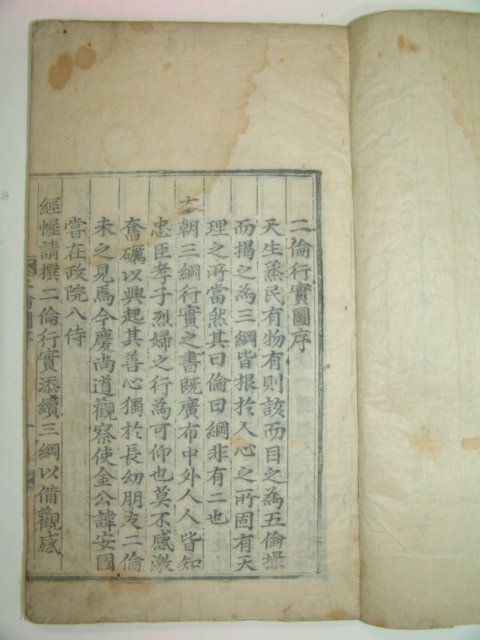 二倫行實圖序
天生蒸民有物有則該而目之為五倫操
而揭之為三綱皆根於人心之所固有天
理之所當然其曰倫曰綱非有二也
本朝三綱行實之書既廣布中外人人皆知
忠臣孝子烈婦之行為可仰也莫不感激
奮礪以興起其善心獨於長幼朋友二倫
未之見焉今慶尚道觀察使金公諱安國
嘗在政院入侍
經幄請撰二倫行實添續三綱以備觀感